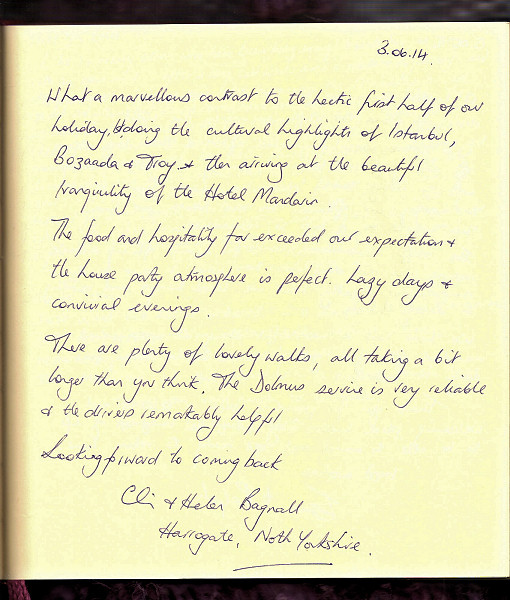 3.06.14.
What a marvellous contrast to the hectic first half of our
holiday, doing the cultural highlights of Istanbul,
Bozaada & Troy & then arriving at the beautiful
tranquility of the Hotel Mandarin.
The food and hospitality far exceeded our expectation &
the house party atmosphere is perfect. Lazy days &
convivial evenings.
There are plenty of lovely walks, all taking a bit
longer than you think. The Dolmus service is very reliable
& the drivers remarkably helpful
Looking forward to coming back
& Helen Bagnall
Harrogate, North Yorkshire.